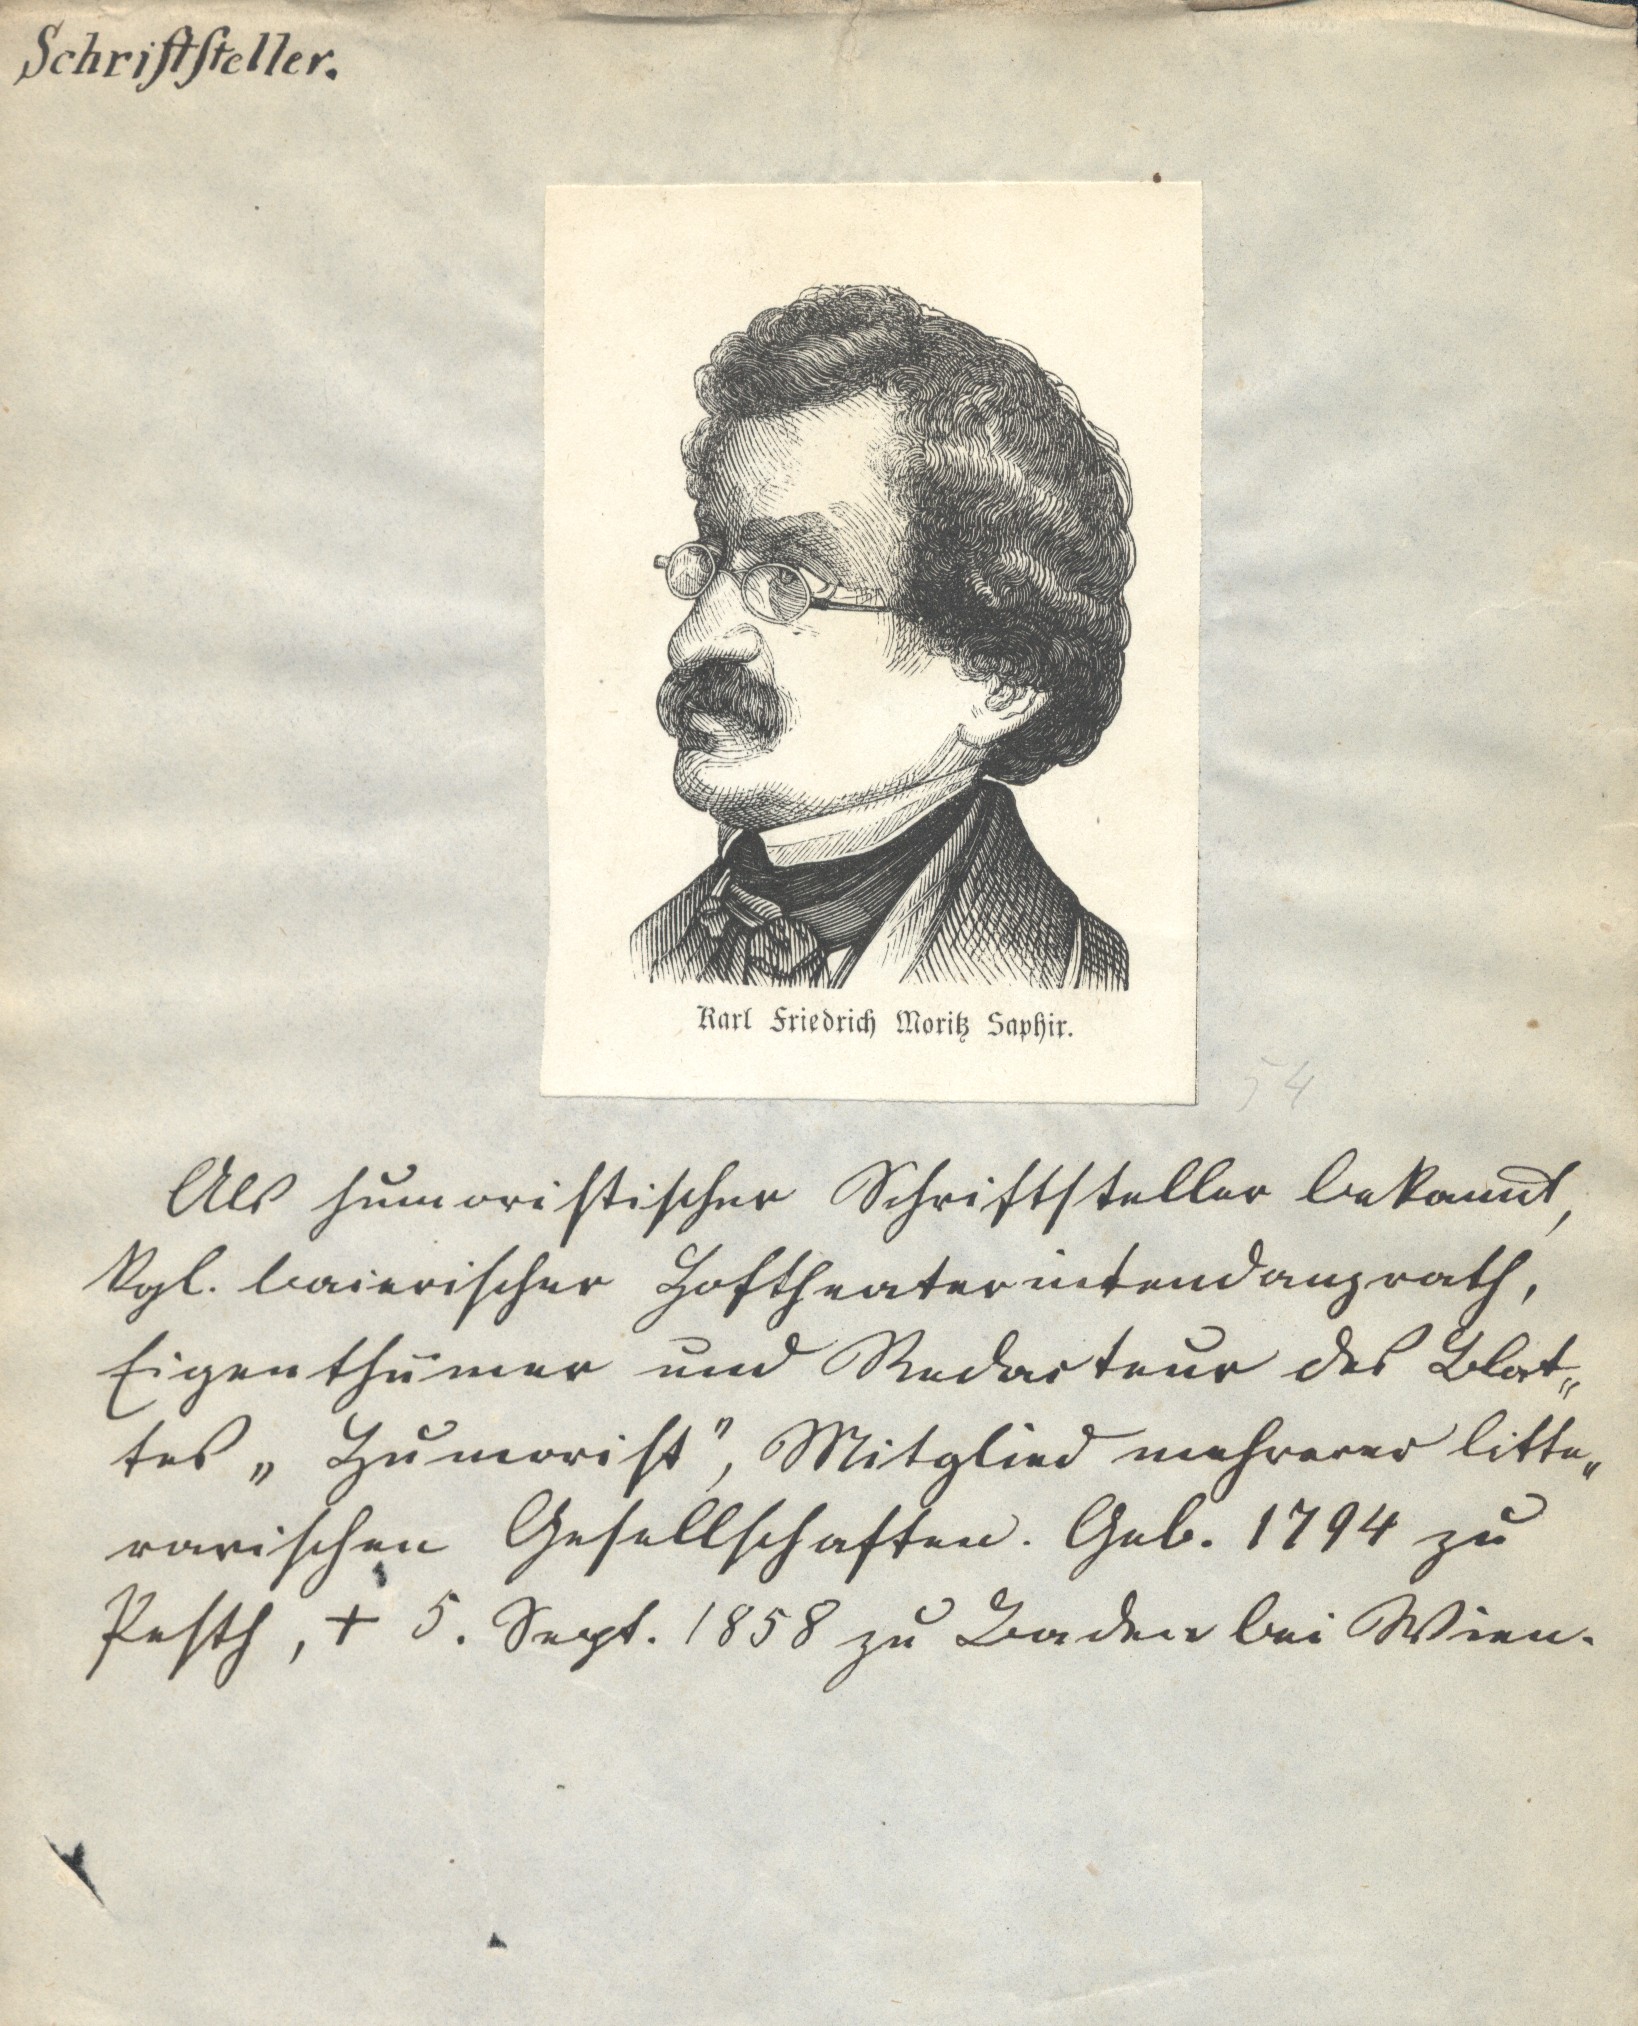 Schriftsteller.
Karl Friedrich Moritz Saphir.
54
Als humoristischer Schriftsteller bekannt,
kgl. baierischer Hoftheaterintendanzrath,
Eigenthümer und Redacteur des Blat„
tes „Humorist”, Mitglied mehrerer litte„
rarischen Gesellschaften. Geb. 1794 zu
Pesth, + 5. Sept. 1858 zu Baden bei Wien.